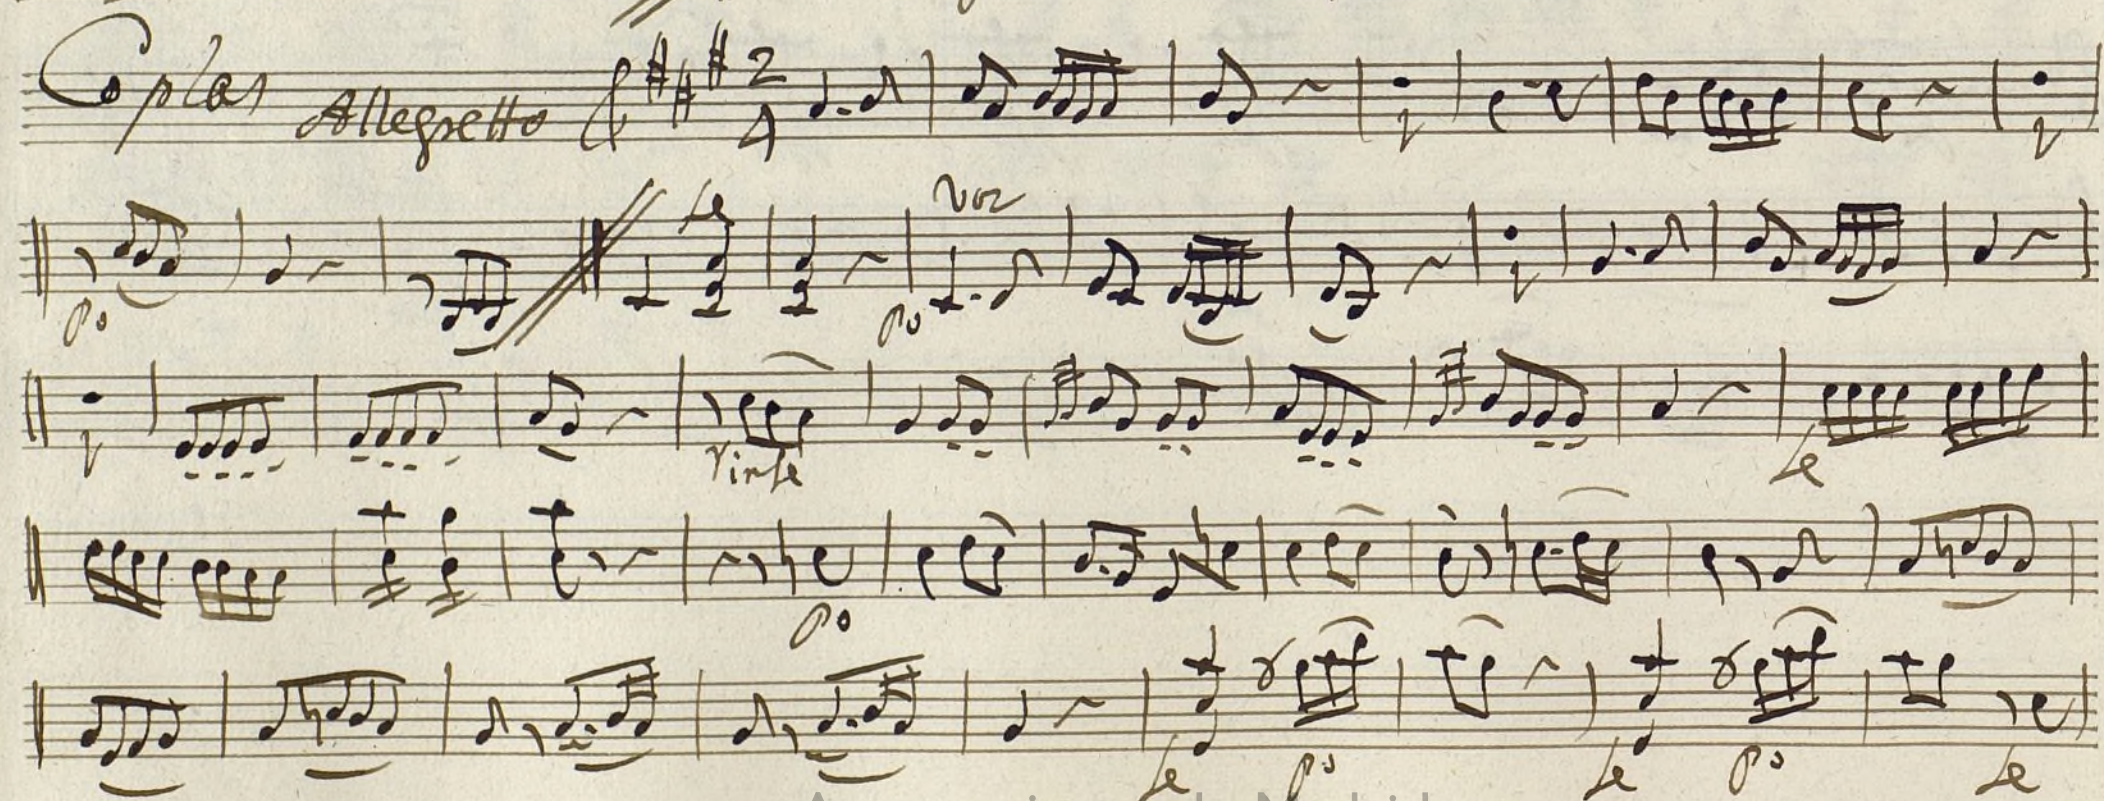 Coplas Allegretto 2 4
fe voz
po po
Vinfe fe
po
fe po fe po fe